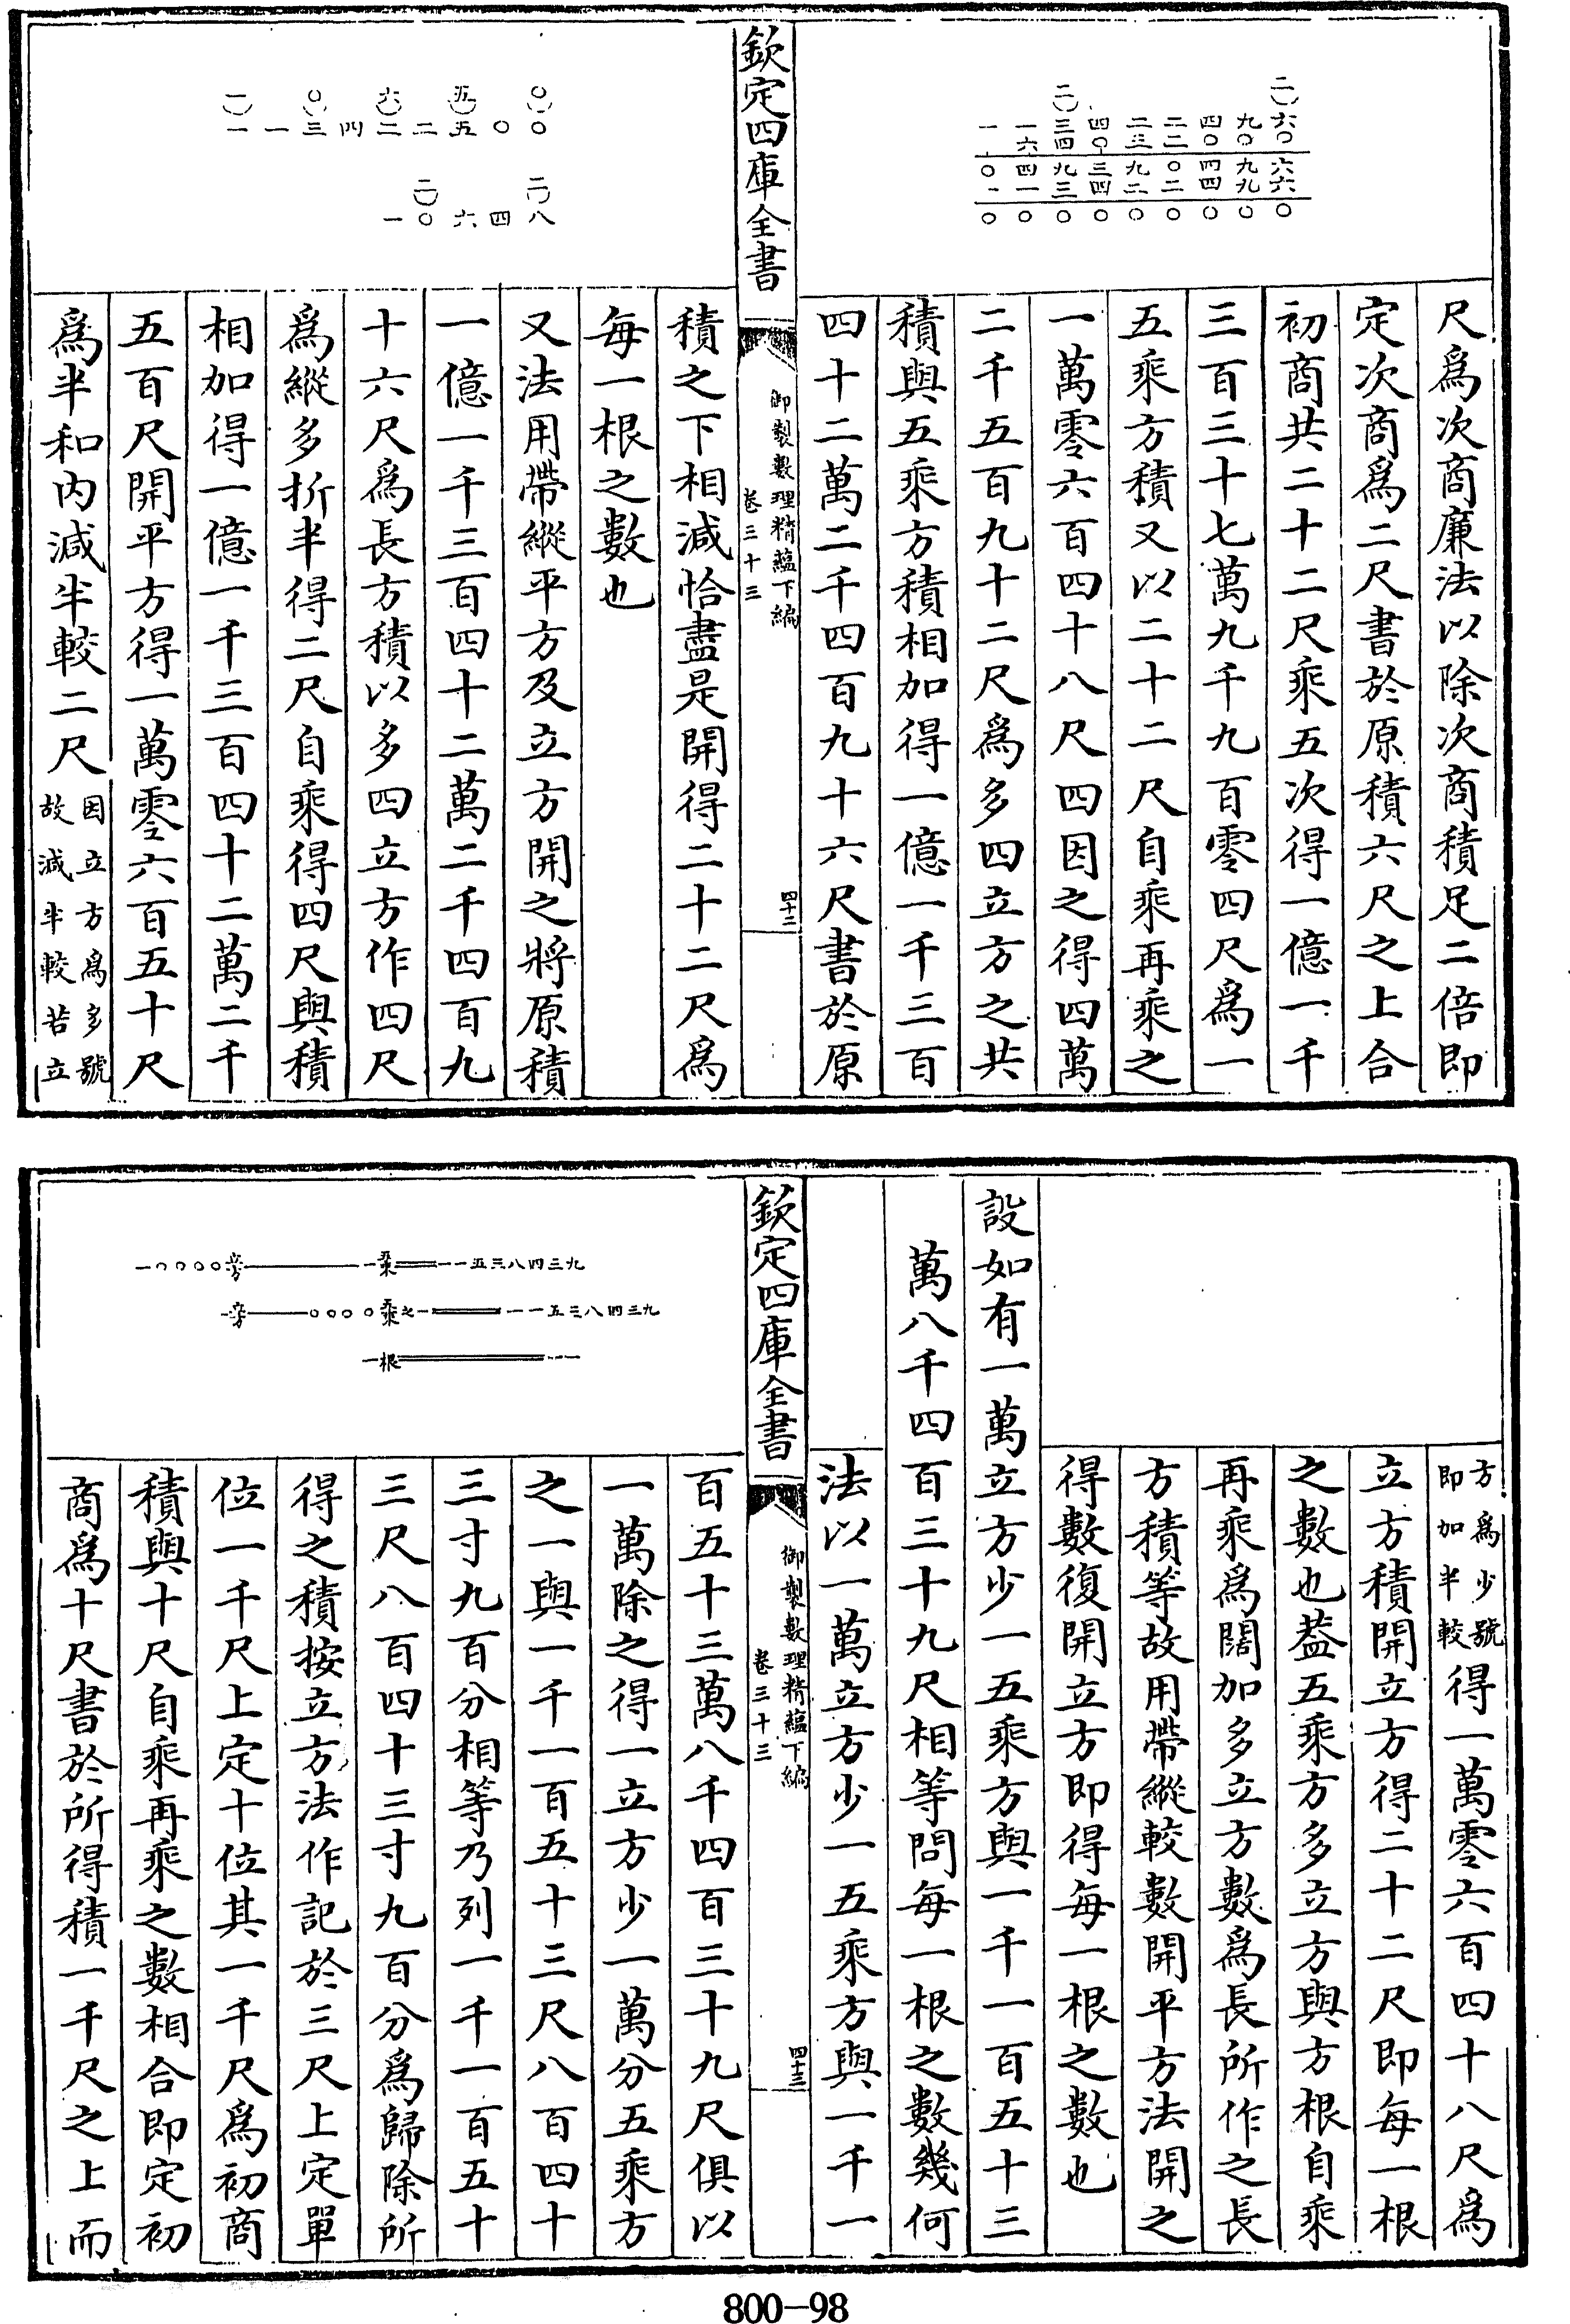 尺爲次商廉法以除次商積足二倍即
定次商爲二尺書於原積六尺之上合
初商共二十二尺乘五次得一億一千
三百三十七萬九千九百零四尺爲一
五乘方積又以二十二尺自乘再乘之
一萬零六百四十八尺四因之得四萬
二千五百九十二尺爲多四立方之共
積與五乘方積相加得一億一千三百
四十二萬二千四百九十六尺書於原
欽定四庫全書
御製數理精蘊下編
卷三十三
四十二
積之下相減恰盡是開得二十二尺爲
每一根之數也
又法用帶縱平方及立方開之將原積
一億一千三百四十二萬二千四百九
十六尺爲長方積以多四立方作四尺
爲縱多折半得二尺自乘得四尺與積
相加得一億一千三百四十二萬二千
五百尺開平方得一萬零六百五十尺
爲半和內減半較二尺因立方爲多號
故減半較若立
方爲少號
即加半較得一萬零六百四十八尺爲
立方積開立方得二十二尺即每一根
之數也葢五乘方多立方與方根自乘
再乘爲闊加多立方數爲長所作之長
方積等故用帶縱較數開平方法開之
得數復開立方即得每一根之數也
設如有一萬立方少一五乘方與一千一百五十三
萬八千四百三十九尺相等問每一根之數幾何
法以一萬立方少一五乘方與一千一
欽定四庫全書
御製數理精蘊下編
卷三十三
四十三
一〇〇〇〇立方 一五乘 一一五三八四三九
一立方 〇〇〇〇五乘之一 一一五三八四三九
一根
百五十三萬八千四百三十九尺俱以
一萬除之得一立方少一萬分五乘方
之一與一千一百五十三尺八百四十
三寸九百分相等乃列一千一百五十
三尺八百四十三寸九百分爲歸除所
得之積按立方法作記於三尺上定單
位一千尺上定十位其一千尺爲初商
積與十尺自乘再乘之數相合即定初
商爲十尺書於所得積一千尺之上而
800-98